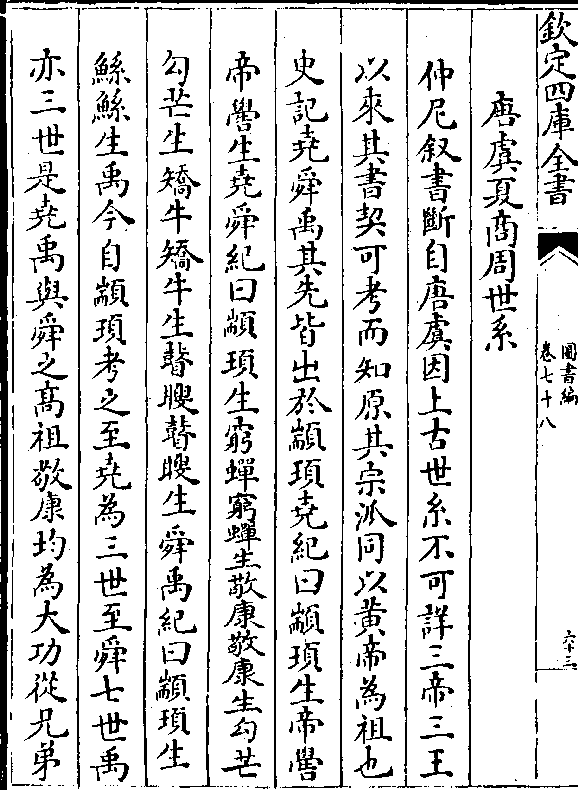 欽定四庫全書
圖書編
卷七十八
六十三
唐虞夏商周世系
仲尼叙書斷自唐虞因上古世系不可詳三帝三王
以來其書契可考而知原其宗派同以黄帝為祖也
史記堯舜禹其先皆出於顓頊堯紀曰顓頊生帝嚳
帝嚳生堯舜紀曰顓頊生窮蟬窮蟬生敬康敬康生勾芒
勾芒生矯牛矯牛生瞽瞍瞽瞍生舜禹紀曰顓頊生
鯀鯀生禹今自顓頊考之至堯為三世至舜七世禹
亦三世是堯禹與舜之髙祖敬康均為大功從兄弟